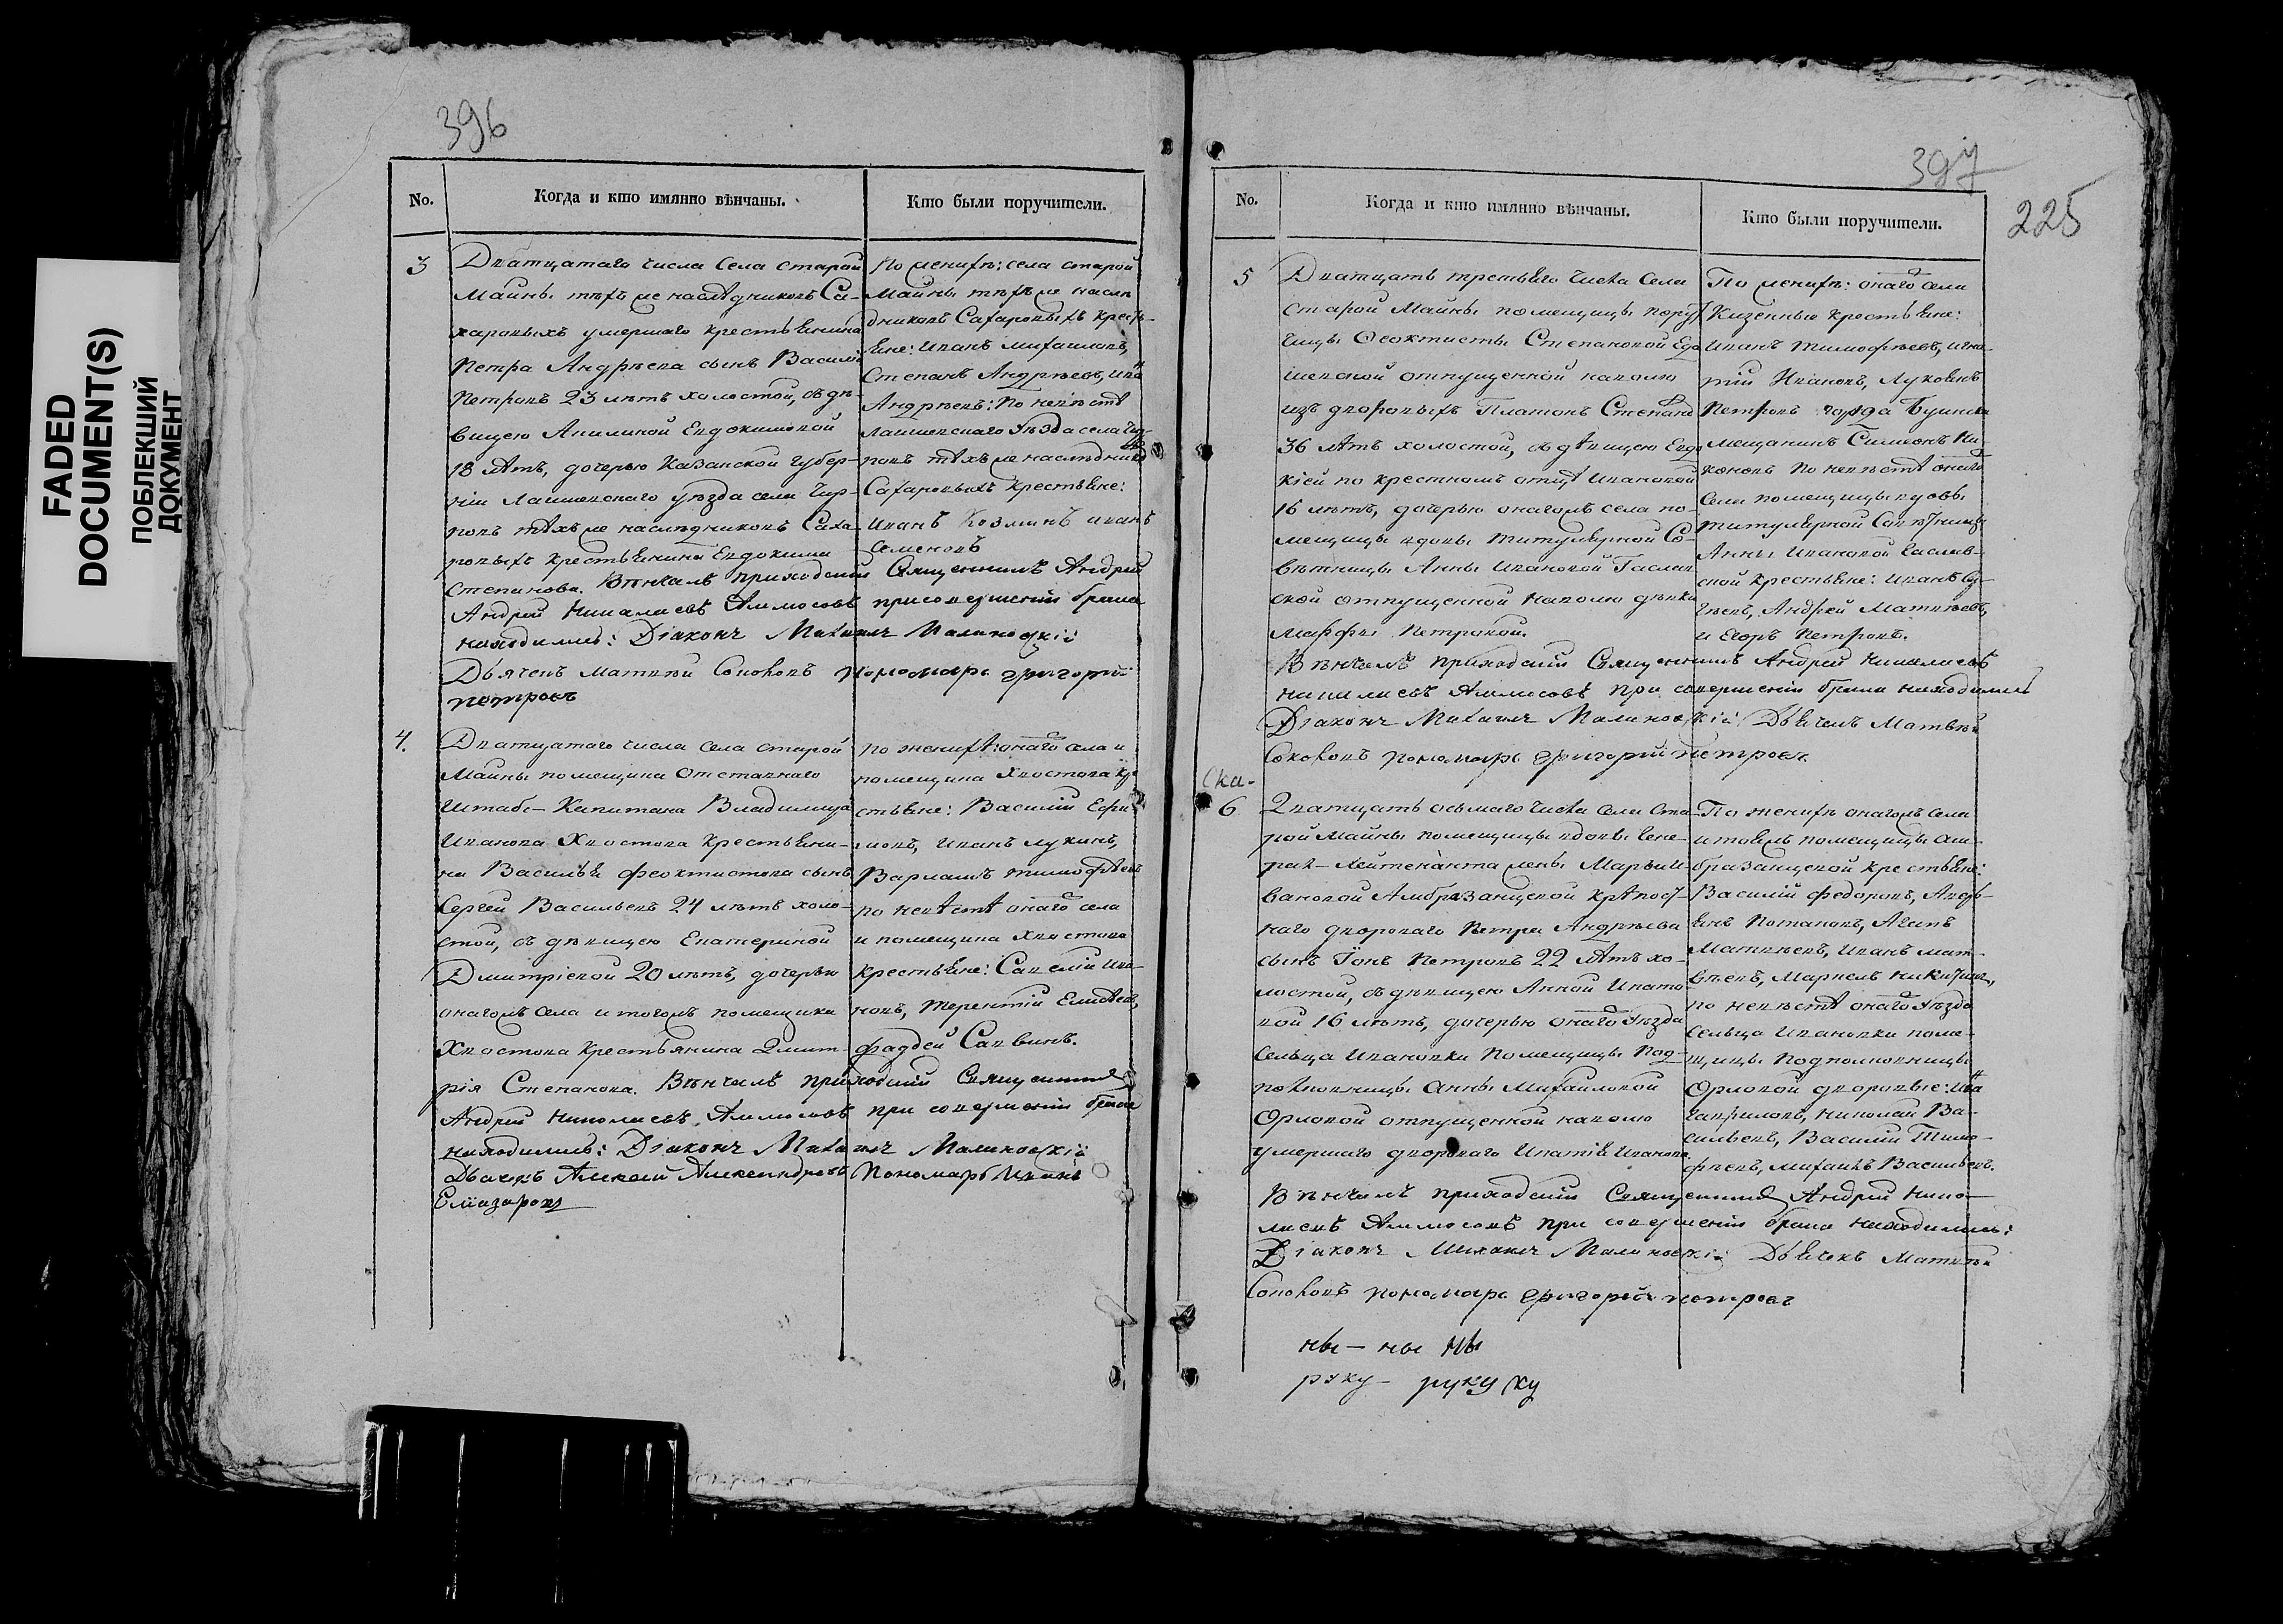 FADED
DOCUMENT(S)
ПОБЛЕКШИЙ
ДОКУМЕНТ
396
No.
Когда и кто имянно вѣнчаны.
Кто были поручители.
3
Дватцатаго числа Села старой
Майны тѣхъ же наслѣдниковъ Са-
харовыхъ умершаго крестьянина
Петра Андрѣева сынъ Василій
Петровъ 23 лѣтъ холостой, съ дѣ-
вицею Акилиной Евдокимовой
18 лѣтъ, дочерью Казанской губер-
ніи Лаишевскаго уѣзда села Чир-
повъ тѣхъ же наслѣдниковъ Саха-
ровыхъ крестьянина Евдокима
Степанова. Вѣнчалъ приходскій Священникъ Андрей
Андрей Николаевъ Аммосовъ при совершеніи брака
находились: Діаконъ Михаилъ Малиновскій
Дьячекъ Матвѣй Соковъ пономарь григорій
петровъ
По женихѣ: села старой
Майны тѣхъ же наслѣ
дниковъ Сахаровыхъ кресть-
яне: Иванъ Михайловъ,
Степанъ Андрѣевъ, Иванъ
Андрѣевъ: По невѣстѣ
Лаишевскаго Уѣзда села Чир-
повъ тѣхъ же наслѣдниковъ
Сахаровыхъ крестьяне:
Иванъ Козминъ иванъ
Семеновъ
4.
Дватцатаго числа села старой
Майны помещика Отставнаго
Штабс-Капитана Владимира
Иванова Хвостова крестьяни-
на Василья феоктистова сынъ
Сергей Васильевъ 24 лѣтъ холо-
стой, съ дѣвицею Екатериной
Дмитріевой 20 лѣтъ, дочерью
онагожъ села и тогожъ помещика
Хвостова крестьянина Дмит-
рія Степанова. Вѣнчалъ приходскій Священникъ
Андрей Николаевъ Аммосовъ при совершеніи брака
находились: Діаконъ Михаилъ Малиновскій
Дьячекъ Алексей Александровъ Пономарь Иванъ
Елиазаровъ
по женихѣ: онаго села и
помещика Хвостова кре
стьяне: Василій Ефи-
мовъ, Иванъ лукинъ,
Варламъ тимофѣевъ
по невѣстѣ онаго села
и помещика Хвостова
крестьяне: Савелій Ива-
новъ, Терентій Елисѣевъ,
фаддей Саввинъ.
397
225
No.
Когда и кто имянно вѣнчаны.
Кто были поручители.
5
Дватцать третьяго числа Села
старой Майны помещицы пору
чицы Феоктисты Степановой
отпущенной наволю
изъ дворовыхъ Платонъ Степановъ
36 лѣтъ холостой, съ дѣвицею Евдо
кіей по крестномъ отцѣ Ивановой
16 лѣтъ, дочерью онагожъ села по-
мещицы вдовы титулярной Со-
вѣтницы Анны Ивановой Гаслав
ской отпущенной наволю дѣвки
Марфы Петровой.
Вѣнчалъ приходскій Священникъ Андрей Николаевъ
николаевъ Аммосовъ при совершеніи брака находились
Діаконъ Михаилъ Малиновскій Дьячекъ Матвѣй
Соковъ пономарь григорій петровъ
По женихѣ: онаго села
Казенные крестьяне:
Иванъ тимофѣевъ, игна-
тій Ивановъ, Лукоянъ
Петровъ города Буинска
мещанинъ Симеонъ Ни-
коновъ По невѣстѣ онаго
Села помещицы вдовы
титулярной Совѣтницы
Анны Ивановой Гаслав-
ской крестьяне: Иванъ
Андрей Матвѣевъ,
и Егоръ Петровъ.
Ска-
6
Дватцать осьмаго числа села Ста
рой Майны помещицы вдовы Гене-
рал-лейтенанта жены Марьи И-
вановой Амбразанцевой крѣпост-
наго двороваго Петра Андрѣева
сынъ Іонъ Петровъ 22 лѣтъ хо-
лостой, съ дѣвицею Анной Ипать-
вой 16 лѣтъ, дочерью онаго Уѣзда
сельца Ивановки Помещицы Под-
полковницы анны Михайловой
Орловой отпущенной наволю
умершаго двороваго Ипатія Иванова.
Вѣнчалъ приходскій Священникъ Андрей Нико-
лаевъ Аммосовъ при совершеніи брака находились:
Діаконъ Михаилъ Малиновскій Дьячекъ Матвѣй
Соковъ пономарь григорій петровъ
По женихѣ онагожъ села
и тоежъ помещицы Ам-
бразанцевой крестьяне:
Василій федоровъ, Авдѣ-
янъ Потаповъ, Агапъ
Матвѣевъ, Иванъ мат-
вѣевъ, Маркелъ никитинъ,
по невѣстѣ онаго Уѣзда
Сельца Ивановки поме-
щицы Подполковницы
Орловой дворовые: Иванъ
Гавриловъ, Николай Ва-
сильевъ, Василій Тимо-
фѣевъ, михаилъ Васильевъ.
ны - ны ны
руку - руку ку